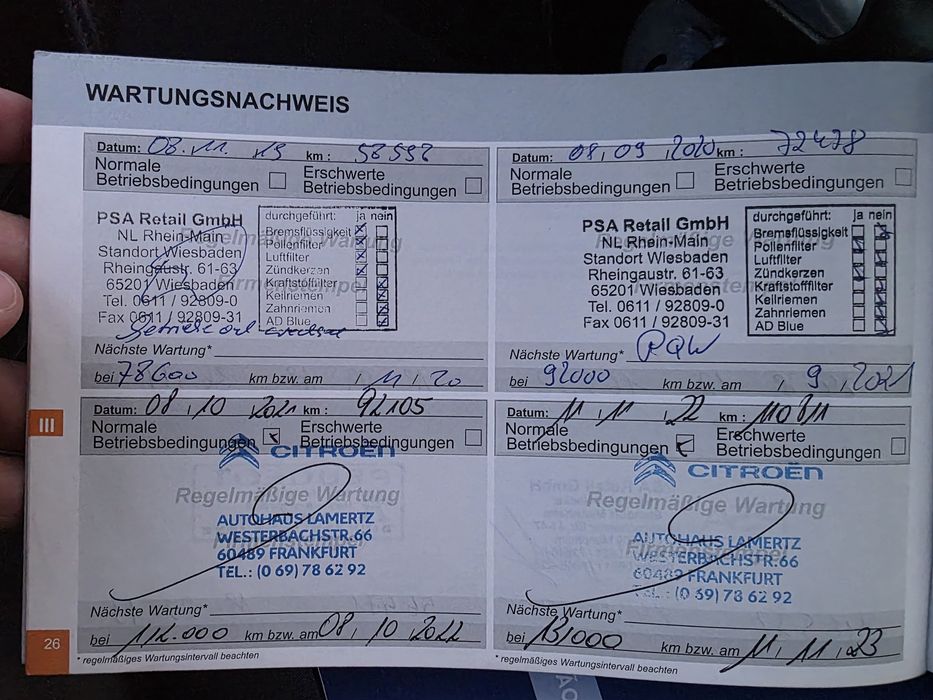 WARTUNGSNACHWEIS
Datum: 08.11.19 km: 58598
Normale Betriebsbedingungen
Erschwerte Betriebsbedingungen
PSA Retail GmbH
NL Rhein-Main
Standort Wiesbaden
Rheingaustr. 61-63
65201 Wiesbaden
Tel. 0611 / 92809-0
Fax 0611 / 92809-31
durchgeführt: ja nein
Bremsflüssigkeit
Pollenfilter
Luftfilter
Zündkerzen
Kraftstofffilter
Keilriemen
Zahnriemen
AD Blue
Regelmäßige Wartung
Firmenstempel
Nächste Wartung*
bei 78600 km bzw. am / 11 / 20
Datum: 08, 09, 2020 km: 72478
Normale Betriebsbedingungen
Erschwerte Betriebsbedingungen
PSA Retail GmbH
NL Rhein-Main
Standort Wiesbaden
Rheingaustr. 61-63
65201 Wiesbaden
Tel. 0611 / 92809-0
Fax 0611 / 92809-31
durchgeführt: ja nein
Bremsflüssigkeit
Pollenfilter
Luftfilter
Zündkerzen
Kraftstofffilter
Keilriemen
Zahnriemen
AD Blue
Regelmäßige Wartung
Firmenstempel
Nächste Wartung*
bei 92000 km bzw. am , 9, 2021
III
Datum: 08, 10, 2021 km: 92105
Normale Betriebsbedingungen
Erschwerte Betriebsbedingungen
CITROËN
Regelmäßige Wartung
AUTOHAUS LAMERTZ
WESTERBACHSTR.66
60489 FRANKFURT
TEL.: (0 69) 78 62 92
Nächste Wartung*
bei 112.000 km bzw. am 08, 10 2022
* regelmäßiges Wartungsintervall beachten
Datum: 11, 11, 22 km: 110811
Normale Betriebsbedingungen
Erschwerte Betriebsbedingungen
CITROËN
Regelmäßige Wartung
Firmenstempel
AUTOHAUS LAMERTZ
WESTERBACHSTR.66
60489 FRANKFURT
TEL.: (0 69) 78 62 92
Nächste Wartung*
bei 131000 km bzw. am 11, 11, 23
* regelmäßiges Wartungsintervall beachten
26